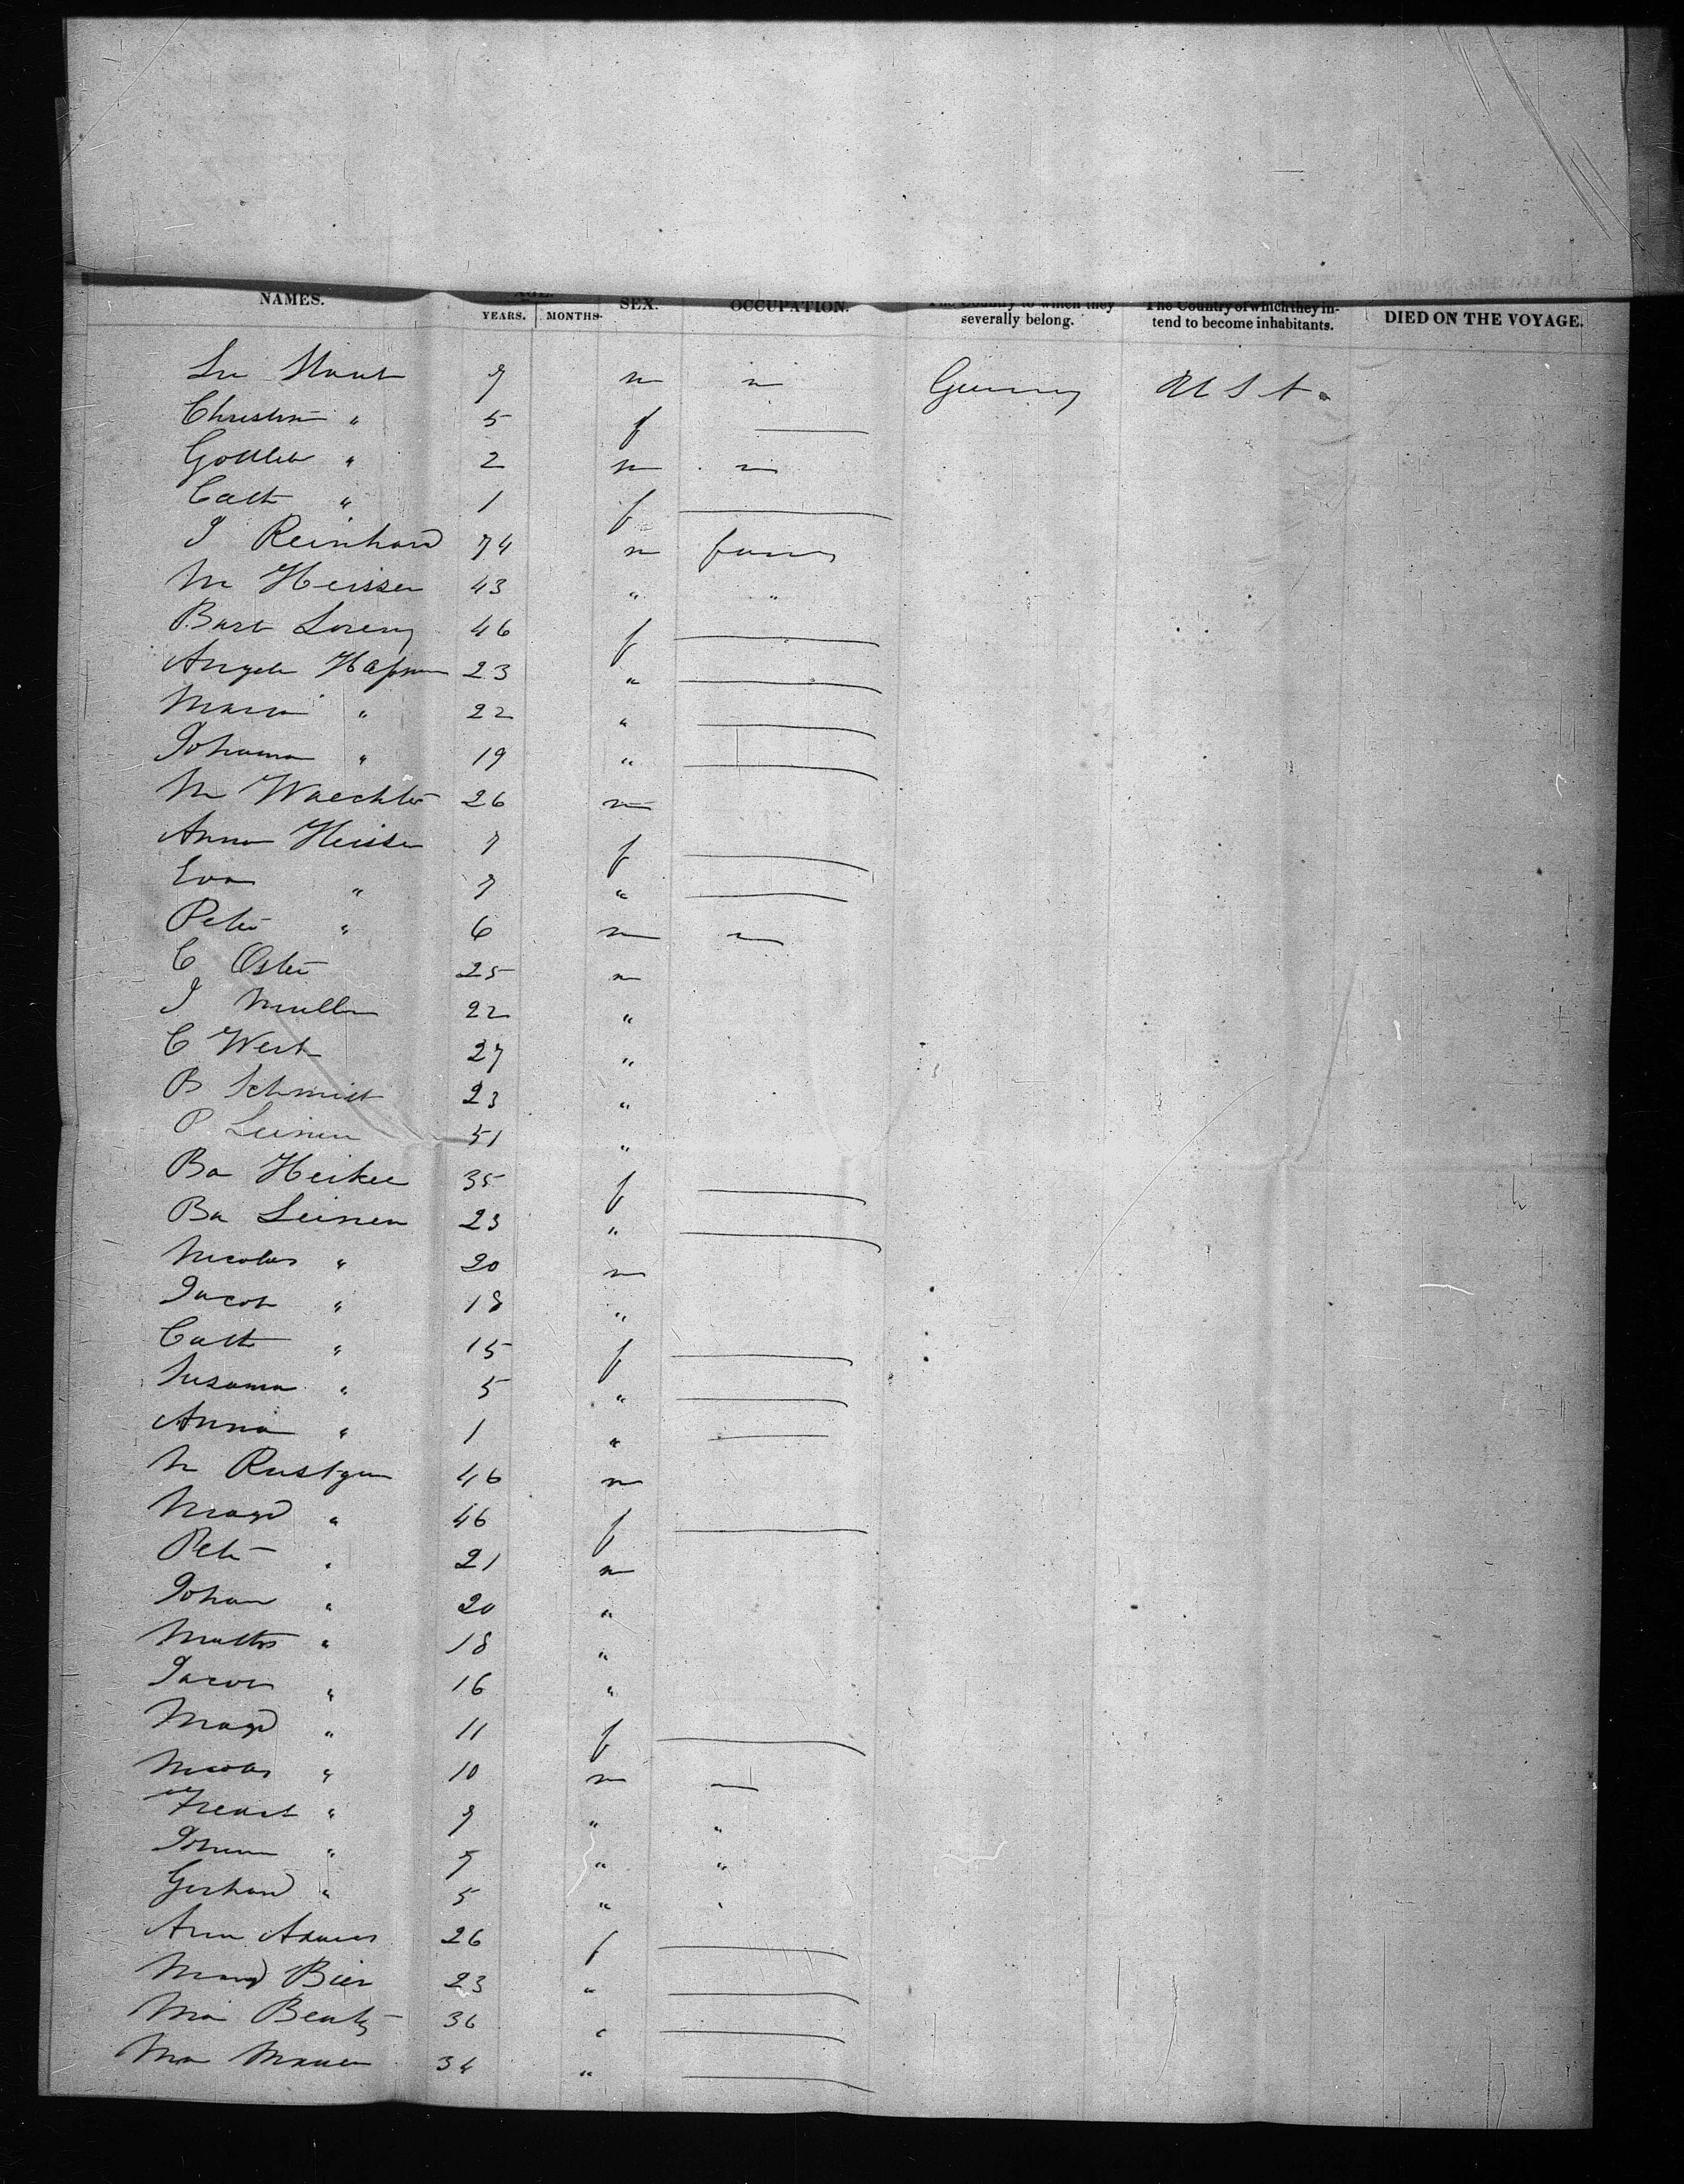 NAMES. AGE. SEX. OCCUPATION. The Country to which they The Country of which they in-
YEARS. MONTHS. severally belong. tend to become inhabitants. DIED ON THE VOYAGE.
7 m Germany U S A.
Christin " 5 f
Gottlieb " 2 m
Cath " 1 f
J Reinhard 74 m farmer
M Heisser 43 " "
Barb Lorenz 46 f
Angela 23 "
Maria " 22 "
Johanna " 19 "
M Waechter 26 m
Anna Heisser 7 f
Eva " 7 "
Peter " 6 m
C Oster 25 m
J Muller 22 "
C West 27 "
P Schmidt 23 "
P Leinen 51 "
Ba Heiker 35 f
Ba Leinen 23 "
Nicolas " 20 m
Jacob " 18 "
Cath " 15 f
Susanna " 5 "
Anna " 1 "
46 m
Magd " 46 f
Peter " 21 m
Johan " 20 "
Mathis " 18 "
Jacob " 16 "
Magd " 11 f
Nicolas " 10 m
" 9 " "
Johann " 7 " "
Gerhard " 5 " "
Ann Adams 26 f
Magd Bier 23 "
Ma 36 "
Ma 34 "